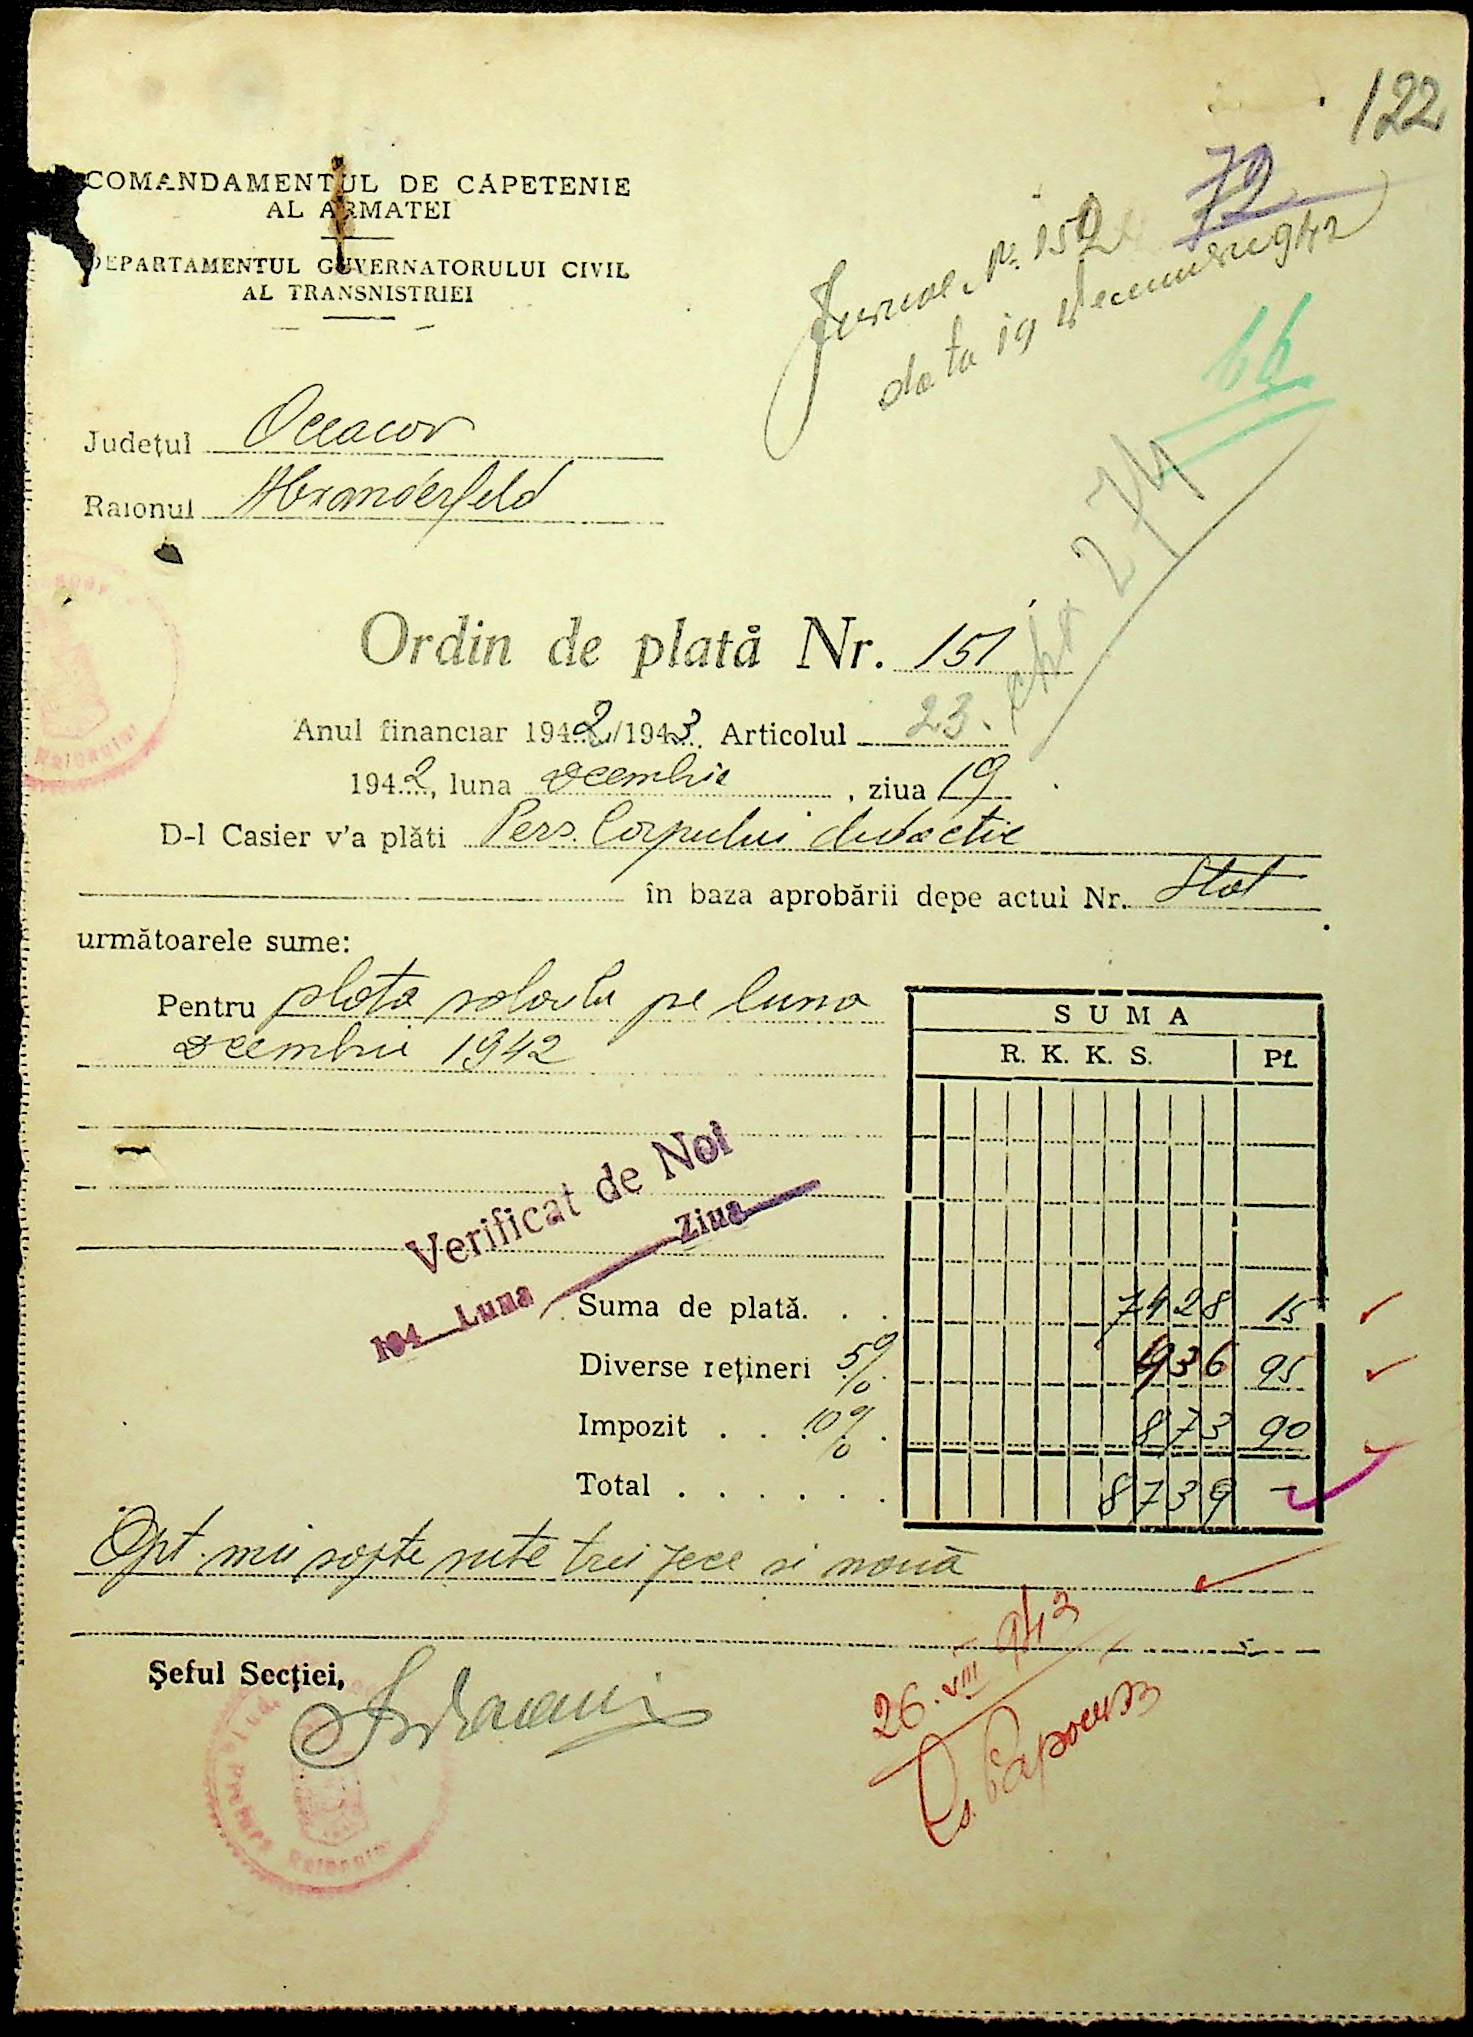 122
72
COMANDAMENTUL DE CAPETENIE
AL ARMATEI
DEPARTAMENTUL GUVERNATORULUI CIVIL
AL TRANSNISTRIEI
Jurnal Nr. 150
data 19 Decembrie 942
66
274
Județul Oceacov
Raionul
Ordin de plată Nr. 151
Anul financiar 1942/1943 Articolul 23.
1942, luna Decembrie, ziua 19
D-l Casier v'a plăti Pers. Corpului didactic
în baza aprobării depe actul Nr. Stat
următoarele sume:
Pentru plata salariilor pe luna
Decembrie 1942
SUMA
R. K. K. S. Pf.
Verificat de Noi
194 Luna Ziua
Suma de plată. . . 7428 15
Diverse rețineri 5% 436 95
Impozit . . 10% . 873 90
Total . . . . . . 8739 —
Opt mii șapte sute treizece și nouă
Șeful Secției,
26.VIII 943
Raionului
Pretura Raionului